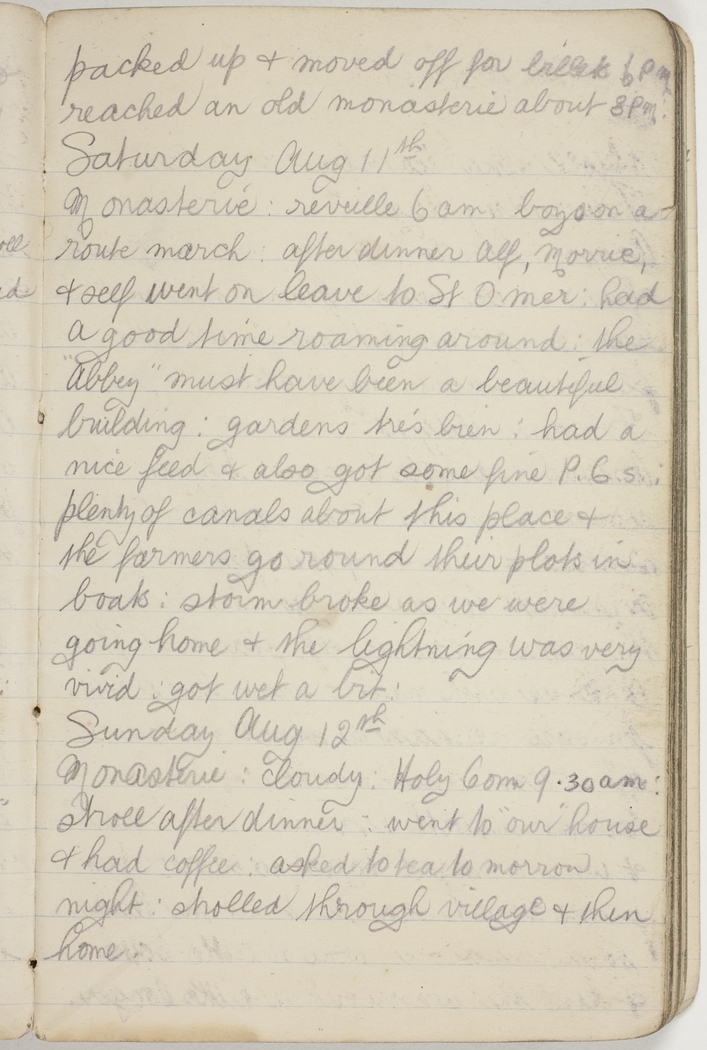 packed up & moved off for billets 6 Pm
reached an old monasterie about 8 Pm:
Saturday Aug 11th
Monasterie: reveille 6 am: boys on a
route march: after dinner Alf, Morrie,
& self went on leave to St Omer: had
a good time roaming around: the
"Abbey" must have been a beautiful
building: gardens très bien: had a
nice feed & also got some fine P.C.s.:
plenty of canals about this place &
the farmers go round their plots in
boats: storm broke as we were
going home & the lightning was very
vivid: got wet a bit:
Sunday Aug 12th
Monasterie: Cloudy: Holy Com 9.30 am:
stroll after dinner: went to "our" house
& had coffee: asked to tea to morrow
night: strolled through village & then
home.